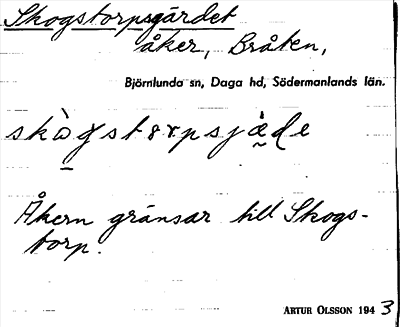 Skogstorpsgärdet
åker, Bråten,
Björnlunda sn, Daga hd, Södermanlands län.
skò̠gstorpsjä̀de
Åkern gränsar till Skogs-
torp.
ARTUR OLSSON 1943